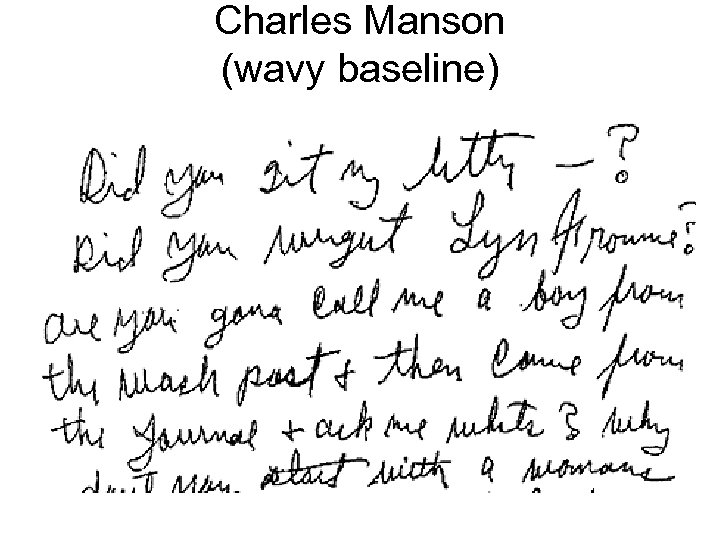 Charles Manson
(wavy baseline)
Did you git my letter — ?
Did you Lyn Froume?
are you gona call me a boy from
the post & then come from
the Journal & ask me whats & why
dont you start with a womans